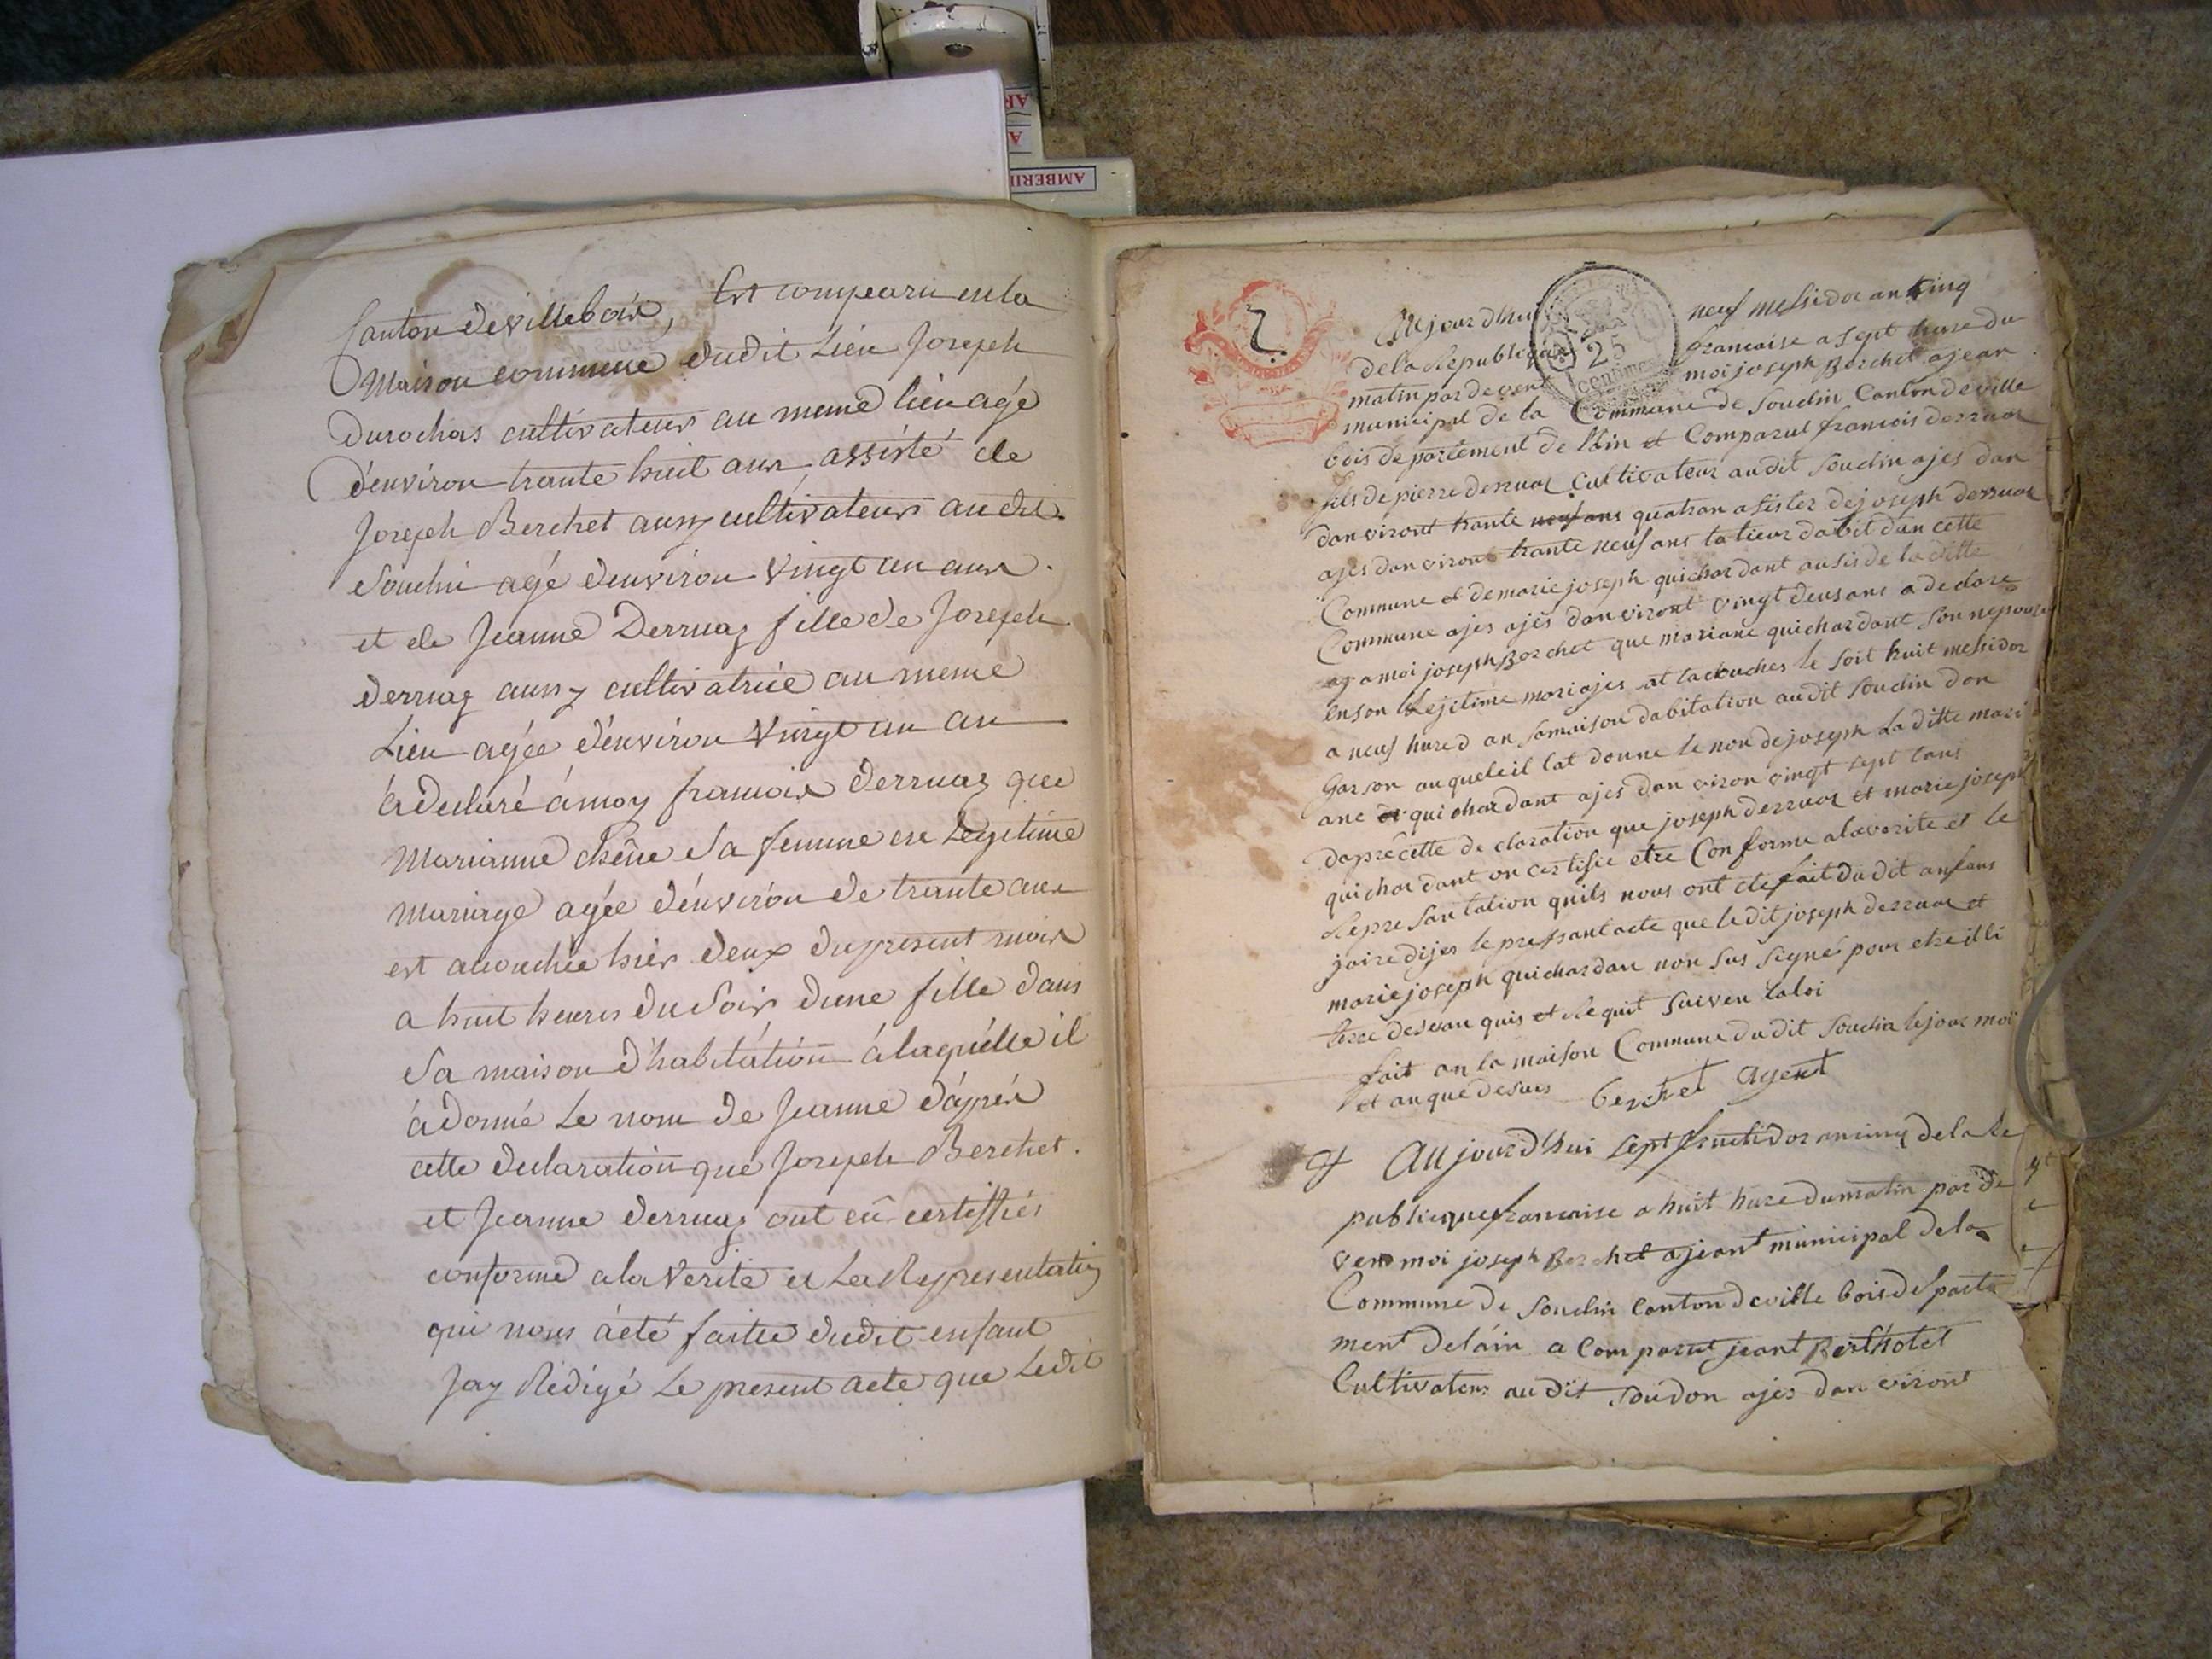 Canton de villebois, Est comparu en la
Maison commune dudit Lieu Joseph
Durochas cultivateur au meme lieu agé
d'environ trante huit ans assisté de
Joseph Berchet aussy cultivateur audit
Souclin agé d'environ vingt un ans.
et de Jeanne Derruaz fille de Joseph
derruaz aussy cultivatrice au meme
Lieu agée d'environ vingt un an
à declaré à moy francois derruaz que
Marianne chêne Sa femme en Legitime
Mariage agée d'environ de trante ans
est acouchée hier deux du present mois
a huit heures du Soir d'une fille dans
Sa maison d'habitation à laquelle il
à donné Le nom de Jeanne d'après
cette declaration que Joseph Berchet.
et Jeanne derruaz ont en certiffiés
conforme a la verité et La Representation
qui nous à eté faitte dudit enfant
Jay Rédigé Le present acte que Ledit
AMBERI
2
25
centimes
Aujourdhui neuf messidor an cinq
de la Republique francaise a sept hure du
matin pardevent moi joseph Berchet ajean
municipal de la Commune de Souclin Canton de ville
bois departement de l'ain et Comparut francois derruaz
fils de pierre derruaz Cultivateur audit Souclin ajes dan
danviront trante neuf ans quatran asister de joseph derruaz
ajes danviront trante neuf ans tatieur dabit dan cette
Commune et de marie joseph quichardant ausi de la ditte
Commune ajes ajes danviront vingt deus ans a declare
a moi joseph Berchet que mariane quichardant Son nepouse
enson Lejitime mariajes at lacouches le soit huit messidor
a neuf hure dan Samaison dabitation audit Souclin don
garson auqueleil lat donne le non de joseph La ditte mari
ane quichardant ajes dan viron vingt sept tans
daprecette declaration que joseph derruaz et marie joseph
quichardant on certifie etre Conforme alaverite et le
Representation quils nous ont ete fait du dit anfans
jaire dijes le pressant acte que le dit joseph derruaz et
marie joseph quichardan non sus signes pour etre illi
tere de quis et Requit Suiven laloi
fait an la maison Commune dudit Souclin lejour moi
et an que desus berchet agent
Aujourdhui sept fructidor ancinq dela Re
publicque francaise a huit hure dumatin parde
ven moi joseph Berchet ajeant municipal dela
Commune de Souclin canton de ville bois de parta
ment delain a Comparut jeant Berthotet
Cultivateur audit Soudon ajes dan viront